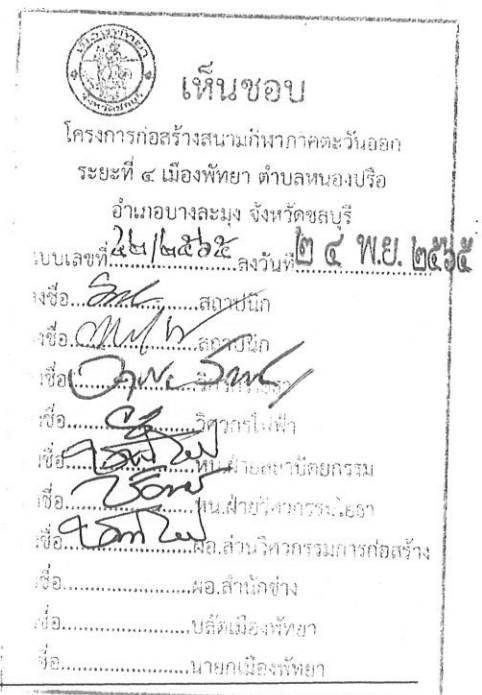 เมืองพัทยา
จังหวัดชลบุรี
เห็นชอบ
โครงการก่อสร้างสนามกีฬาภาคตะวันออก
ระยะที่ ๔ เมืองพัทยา ตำบลหนองปรือ
อำเภอบางละมุง จังหวัดชลบุรี
แบบเลขที่ ๕๒/๒๕๖๕ ลงวันที่ ๒ ๔ พ.ย. ๒๕๖๕
ลงชื่อ..............สถาปนิก
ลงชื่อ..............สถาปนิก
ลงชื่อ..............วิศวกรโยธา
ลงชื่อ..............วิศวกรไฟฟ้า
ลงชื่อ..............หน.ฝ่ายสถาปัตยกรรม
ลงชื่อ..............หน.ฝ่ายวิศวกรรมโยธา
ลงชื่อ..............ผอ.ส่วนวิศวกรรมการก่อสร้าง
ลงชื่อ..............ผอ.สำนักช่าง
ลงชื่อ..............ปลัดเมืองพัทยา
ลงชื่อ..............นายกเมืองพัทยา